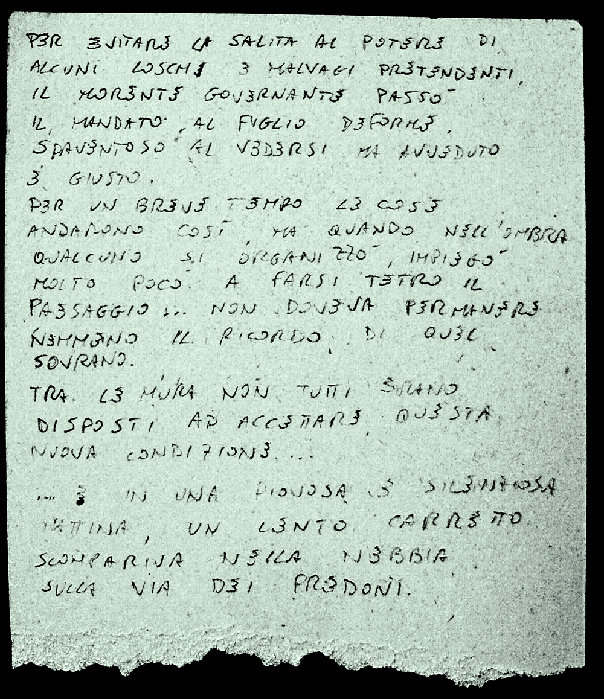 PER EVITARE LA SALITA AL POTERE DI
ALCUNI LOSCHI E MALVAGI PRETENDENTI,
IL MORENTE GOVERNANTE PASSO'
IL MANDATO AL FIGLIO DEFORME,
SPAVENTOSO AL VEDERSI MA AVVEDUTO
E GIUSTO.
PER UN BREVE TEMPO LE COSE
ANDARONO COSI', MA QUANDO NELL'OMBRA
QUALCUNO SI ORGANIZZO', IMPIEGO'
MOLTO POCO A FARSI TETRO IL
PAESAGGIO... NON DOVEVA PERMANERE
NEMMENO IL RICORDO DI QUEL
SOVRANO.
TRA LE MURA NON TUTTI ERANO
DISPOSTI AD ACCETTARE QUESTA
NUOVA CONDIZIONE...
... E IN UNA PIOVOSA E SILENZIOSA
MATTINA, UN LENTO CARRETTO
SCOMPARIVA NELLA NEBBIA
SULLA VIA DEI PREDONI.